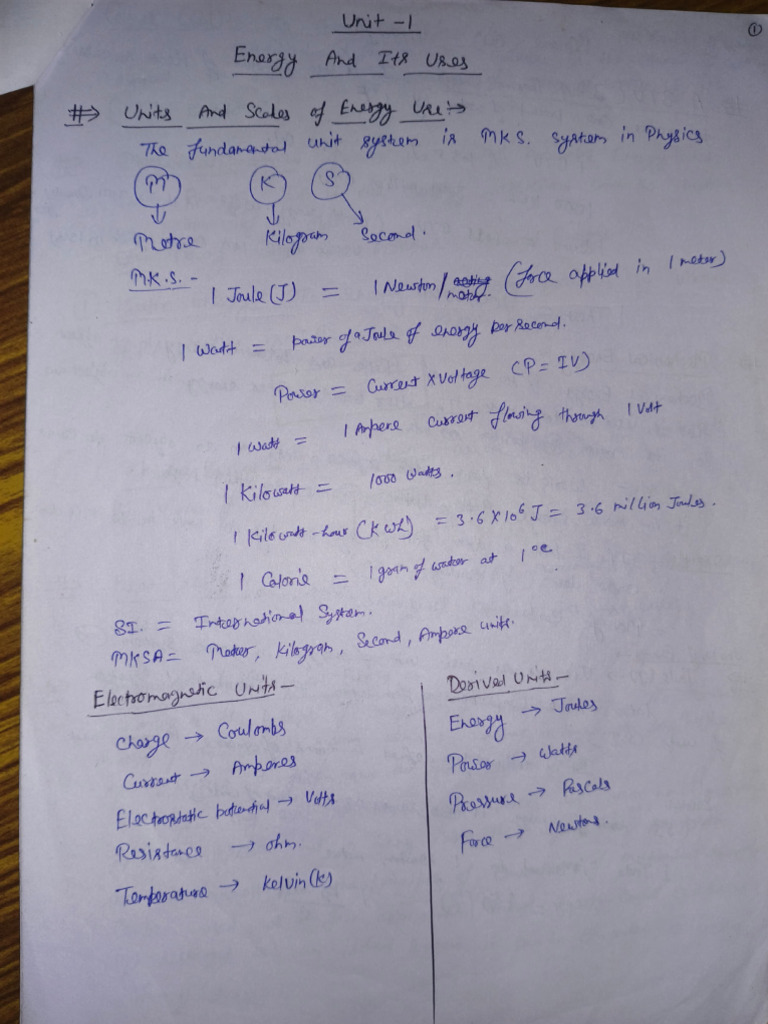 ①
Unit - 1
Energy And Its Uses
#⇒ Units And Scales of Energy Use :→
The fundamental unit system is MKS. System in Physics
M K S
Metre Kilogram Second.
M.K.S. -
1 Joule (J) = 1 Newton/meter. (force applied in 1 meter)
1 Watt = power of a Joule of energy per second.
Power = Current X Voltage (P = IV)
1 watt = 1 Ampere current flowing through 1 Volt
1 Kilowatt = 1000 Watts.
1 Kilowatt-hour (KWh) = 3.6 X 10⁶ J = 3.6 million Joules.
1 Calorie = 1 gram of water at 1 °C.
SI. = International System.
MKSA = Meter, Kilogram, Second, Ampere units.
Electromagnetic Units -
Charge → Coulombs
Current → Amperes
Electrostatic potential → Volts
Resistance → ohm.
Temperature → Kelvin (K)
Derived Units -
Energy → Joules
Power → Watts
Pressure → Pascals
Force → Newtons.